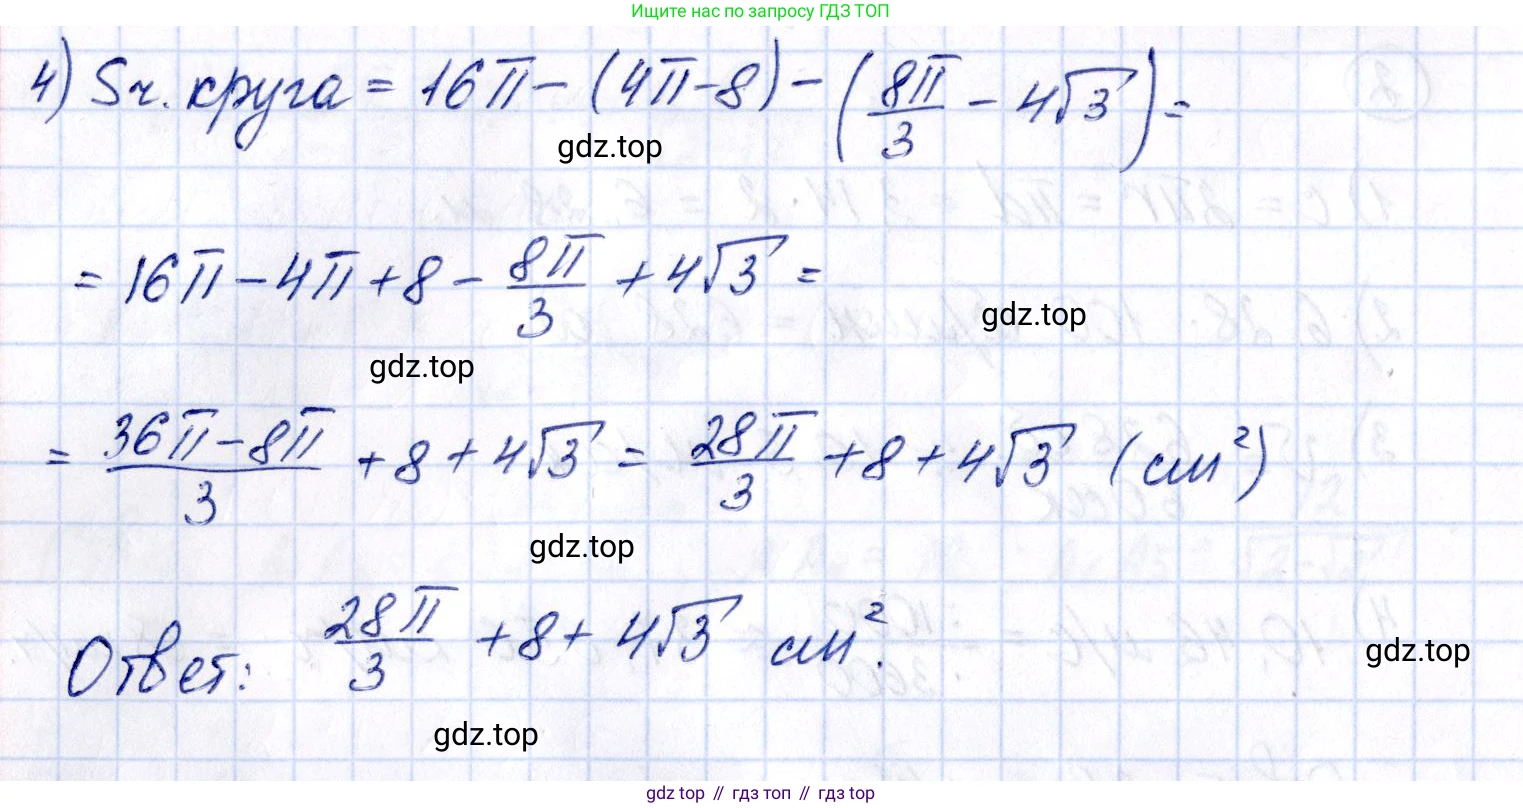 Ищите нас по запросу ГДЗ ТОП
4) Sч. круга = 16π - (4π - 8) - (8π/3 - 4√3) =
gdz.top
= 16π - 4π + 8 - 8π/3 + 4√3 =
gdz.top
gdz.top
= (36π - 8π)/3 + 8 + 4√3 = 28π/3 + 8 + 4√3 (см²)
gdz.top
Ответ: 28π/3 + 8 + 4√3 см².
gdz.top
gdz.top
gdz top // гдз топ // гдз top